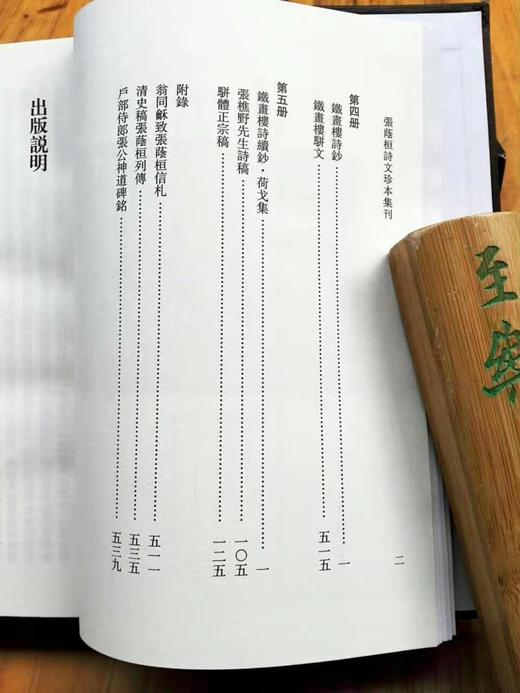 張蔭桓詩文珍本集刊
二
第四册
鐵畫樓詩鈔……一
鐵畫樓駢文……五一五
第五册
鐵畫樓詩續鈔·荷戈集……一
張樵野先生詩稿……一〇五
駢體正宗稿……一二五
附錄
翁同龢致張蔭桓信札……五一一
清史稿張蔭桓列傳……五三五
戶部侍郎張公神道碑銘……五三九
出版説明
至樂